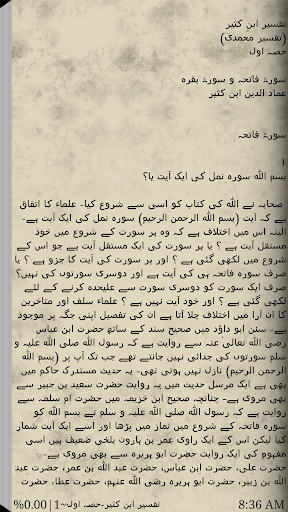 تفسیر ابن کثیر
(تفسیر محمدی)
حصہ اول
سورۃ فاتحہ و سورۃ بقرہ
عماد الدین ابن کثیر
سورۃ فاتحہ
1
بسم اللہ سورہ نمل کی ایک آیت یا؟
صحابہ نے اللہ کی کتاب کو اسی سے شروع کیا۔ علماء کا اتفاق
ہے کہ آیت (بسم اللہ الرحمن الرحیم) سورہ نمل کی ایک آیت ہے۔
البتہ اس میں اختلاف ہے کہ وہ ہر سورت کے شروع میں خود
مستقل آیت ہے ؟ یا ہر سورت کی ایک مستقل آیت ہے جو اس کے
شروع میں لکھی گئی ہے ؟ اور ہر سورت کی آیت کا جزو ہے ؟ یا
صرف سورہ فاتحہ ہی کی آیت ہے اور دوسری سورتوں کی نہیں؟
صرف ایک سورت کو دوسری سورت سے علیحدہ کرنے کے لئے
لکھی گئی ہے ؟ اور خود آیت نہیں ہے ؟ علماء سلف اور متاخرین
کا ان آرا میں اختلاف چلا آتا ہے ان کی تفصیل اپنی جگہ پر موجود
ہے۔ سنن ابو داؤد میں صحیح سند کے ساتھ حضرت ابن عباس
رضی اللہ تعالی عنہ سے روایت ہے کہ رسول اللہ صلی اللہ علیہ و
سلم سورتوں کی جدائی نہیں جانتے تھے جب تک آپ پر (بسم اللہ
الرحمن الرحیم) نازل نہیں ہوتی تھی۔ یہ حدیث مستدرک حاکم میں
بھی ہے ایک مرسل حدیث میں یہ روایت حضرت سعید بن جبیر سے
بھی مروی ہے۔ چنانچہ صحیح ابن خزیمہ میں حضرت ام سلمہ سے
روایت ہے کہ رسول اللہ صلی اللہ علیہ و سلم نے بسم اللہ کو
سورہ فاتحہ کے شروع میں نماز میں پڑھا اور اسے ایک آیت شمار
کیا لیکن اس کے ایک راوی عمر بن ہارون بلخی ضعیف ہیں اسی
مفہوم کی ایک روایت حضرت ابو ہریرہ سے بھی مروی ہے۔
حضرت علی، حضرت ابن عباس، حضرت عبد اللہ بن عمر، حضرت عبد
اللہ بن زبیر، حضرت ابو ہریرہ رضی اللہ عنہم، حضرت عطا، حضرت
%0.00 | 1~تفسیر ابن کثیر-حصہ اول 8:36 AM